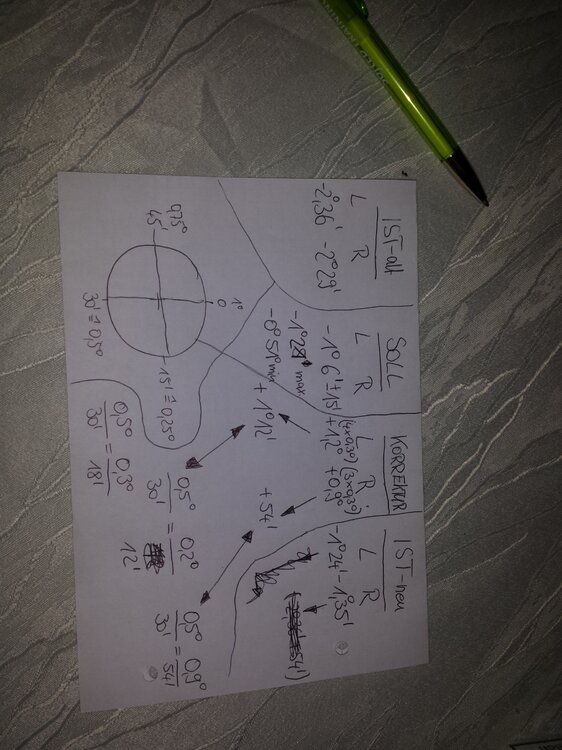 IST-alt
L R
-2°,36' -2°29'
SOLL
L R
-1° 6' ± 15'
-1°21' max
-0° 51' min
KORREKTUR
L R
(4x0,3°) (3x0,3°)
+1,2° +0,9°
+ 1°12'
+ 54'
IST-neu
L R
-1°24' -1,35'
1°
0
0,75°
45'
15' ≙ 0,25°
30' ≙ 0,5°
0,5° = 0,3°
30' 18'
0,5° = 0,2°
30' 12'
0,5° = 0,9°
30' 54'